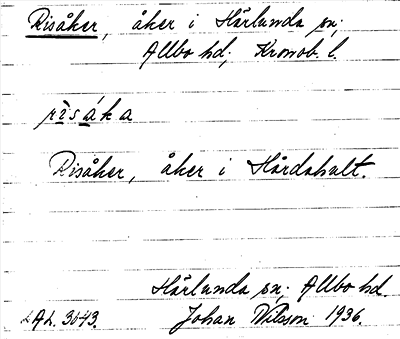 Risåker, åker i Härlunda sn;
Allbo hd; Kronob. l.
risáka
Risåker, åker i Hårdahult.
Härlunda sn; Allbo hd.
Johan Nilsson 1936.